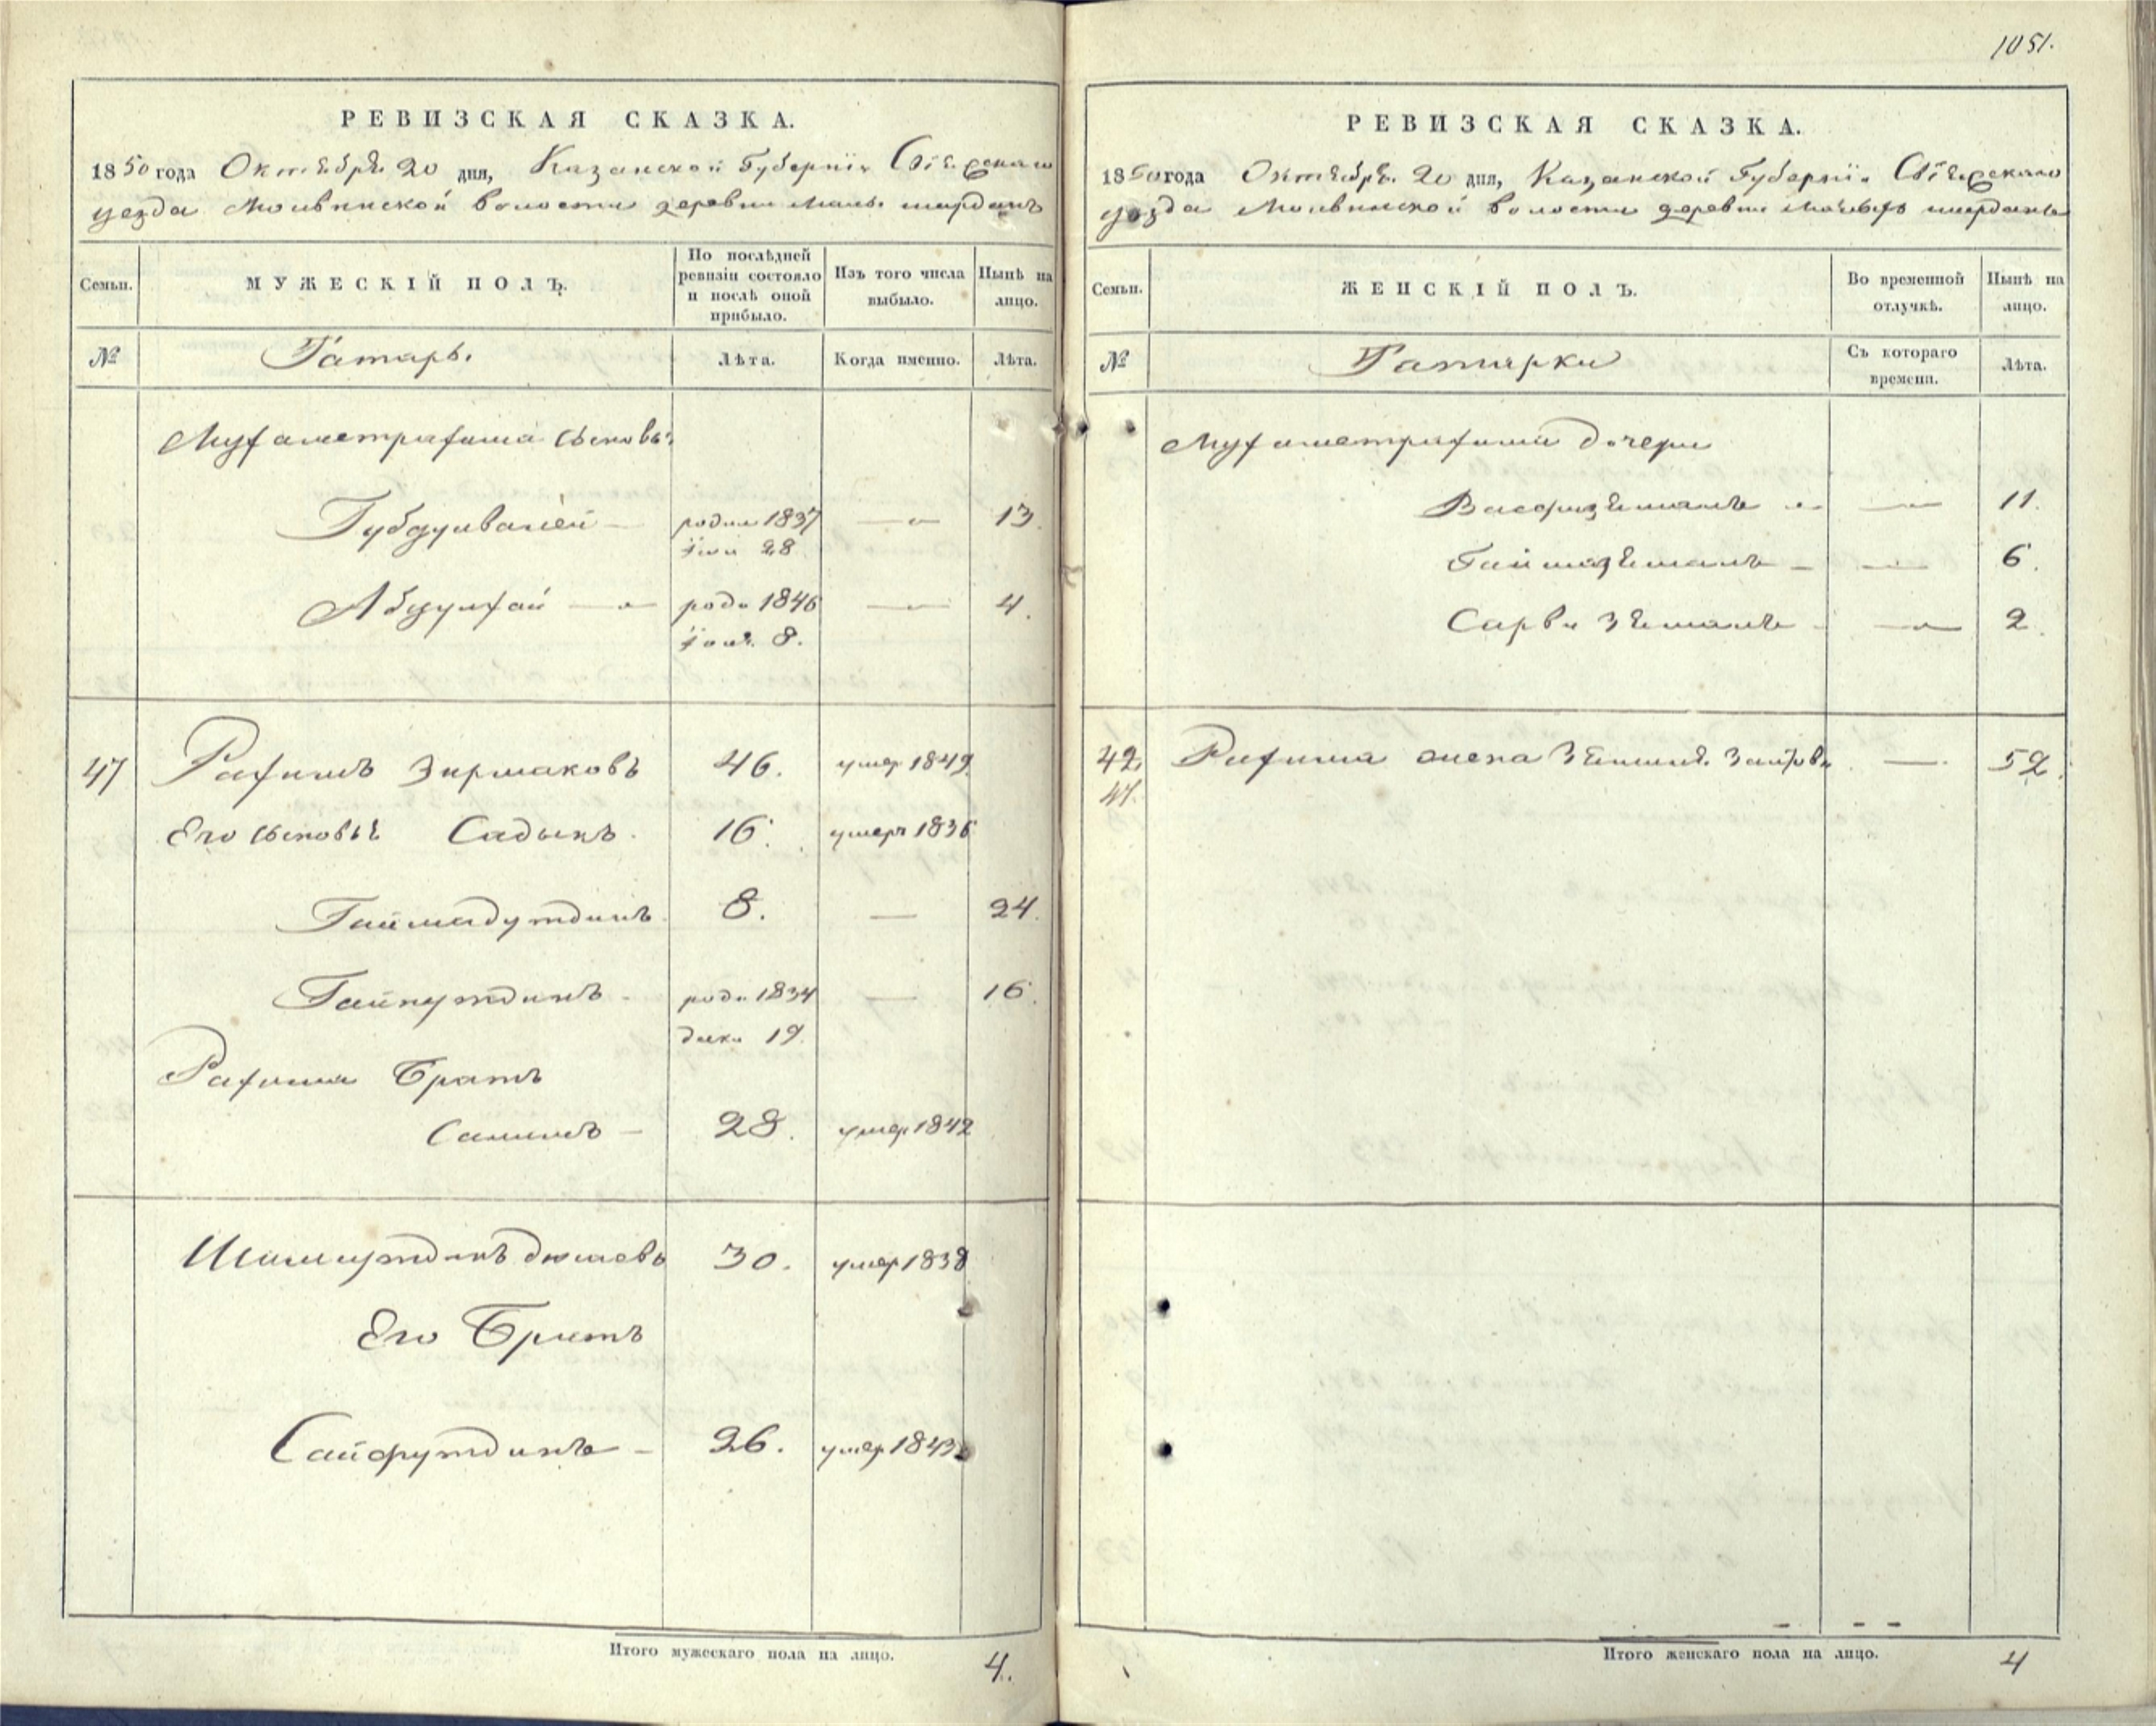 1051.
РЕВИЗСКАЯ СКАЗКА.
1850 года Октября 20 дня, Казанской Губерніи Свіяжскаго
уезда Молвинской волости деревни Малы. ширданъ
Семьи.
МУЖЕСКІЙ ПОЛЪ.
По послѣдней ревизіи состояло и послѣ оной прибыло.
Изъ того числа выбыло.
Нынѣ на лицо.
№
Татаръ.
Лѣта.
Когда именно.
Лѣта.
Мухаметрахима сыновья
Губдулвалей — родил 1837 — 13.
Іюн 28
Абдулхай — роди 1846 — 4.
8.
47 Рахимъ Зирмаковъ 46. умер 1849
Его сыновья Садыкъ 16. умеръ 1836
Гаймадутдинъ 8. — 24.
Гайнутдинъ роди 1834 — 16.
дека 19.
Рахима Братъ
Салимъ — 28. умер 1842
Шамсутдинъ дюмаевъ 30. умер 1838
Его Братъ
Сайфутдинъ — 26. умер 1843
Итого мужескаго пола на лицо. 4.
РЕВИЗСКАЯ СКАЗКА.
1850 года Октября 20 дня, Казанской Губерніи Свіяжскаго
уезда Молвинской волости деревни Малыхъ ширданъ
Семьи.
ЖЕНСКІЙ ПОЛЪ.
Во временной отлучкѣ.
Нынѣ на лицо.
№
Татарки
Съ котораго времени.
Лѣта.
Мухаметрахима дочери
Васфизямаль — 11.
Гайшазямаль — 6.
Сарви Зямаль — 2.
42 Рахима жена Заирова — 52.
47.
Итого женскаго пола на лицо. 4